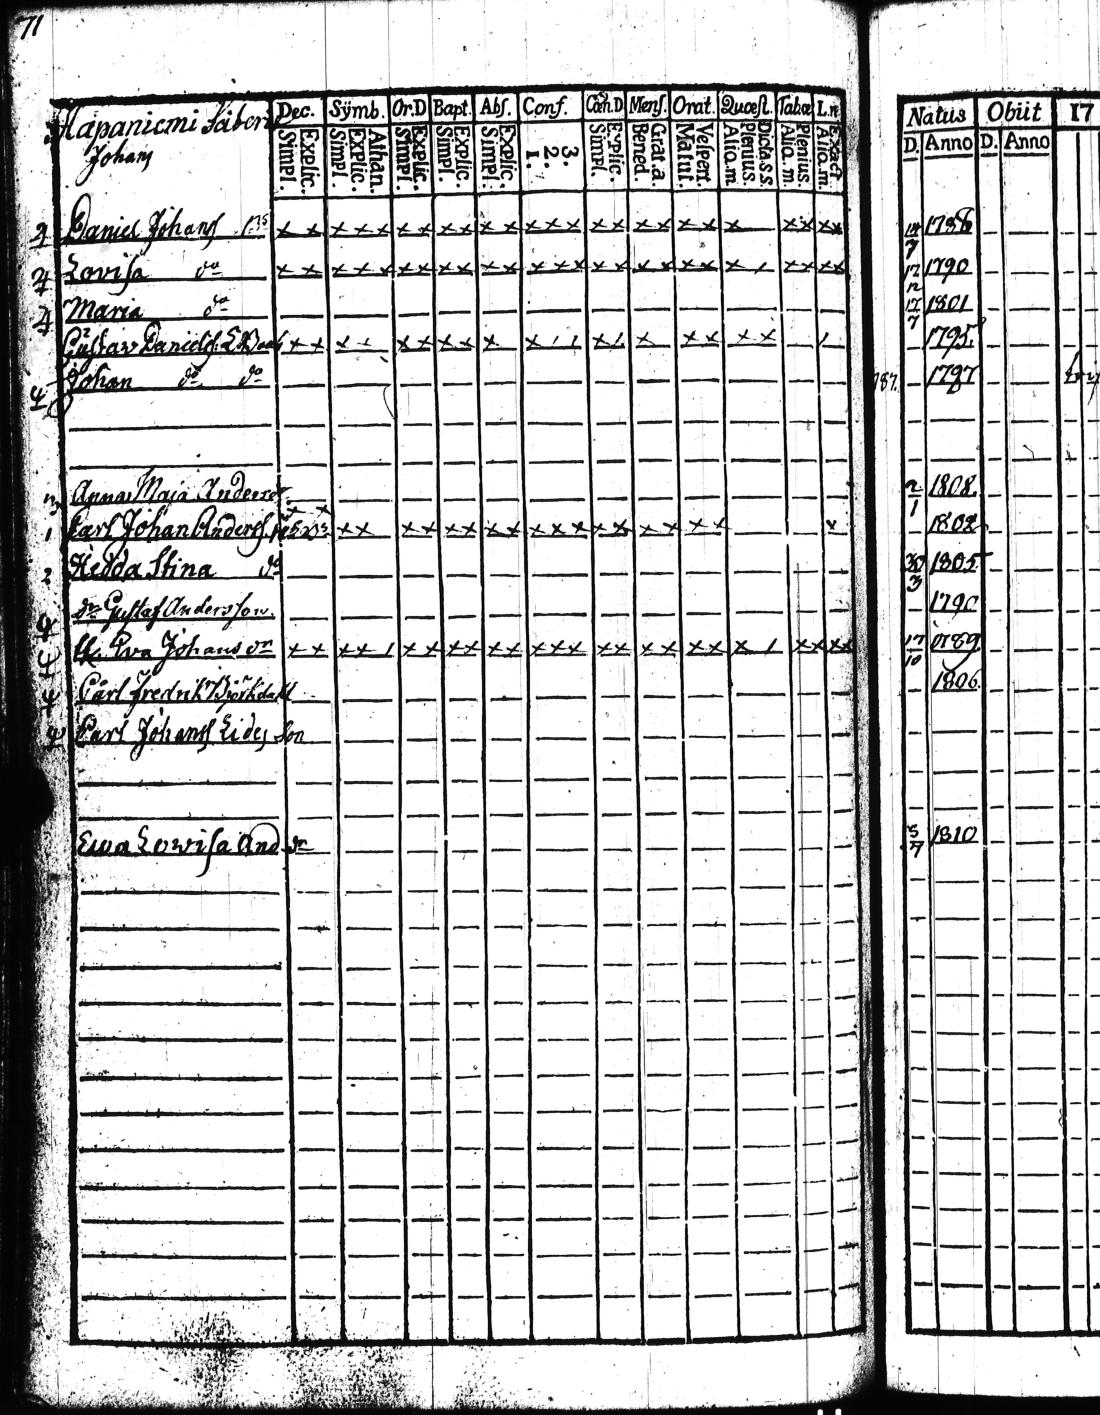 71
Hapaniemi Säteri Dec. Sÿmb. Or.D Bapt. Abs. Conf. Cœn.D Mens. Orat. Quœst. Tabœ L.n Natus Obiit 17
Johans Simpl. Explic. Simpl. Explic. Athan. Simpl. Explic. Simpl. Explic. Simpl. Explic. 1. 2. 3. Simpl. Explic. Bened. Grat.a. Matut. Vespert. Alio.m Plenius. Dicta.s.s. Alio.m. Plenius. Alio.m. Exact. D. Anno D. Anno
Daniel Johans x x x x x x x x x x x x x x x x x x x x x x x x x 7
Lovisa do x x x x x x x x x x x x x x x x x x x x x x x x x 1790
Maria do 17/7 1801
Gustav Daniels x x x x x x x x x x x x x x 1795
Johan do do 787. 1797
Anna Maja Anders 2/1 1808
1 Carl Johan Anders x x x x x x x x x x x x x x x x x x 1802
2 Hedda Stina do 30/3 1805
dr. Gustaf Andersson. 1790
Eva Johans dr x x x x x x x x x x x x x x x x x x x x x x x x 17/10 1789
Carl Fredrik Björkdahl 1806
Carl Johans Lides son
Ewa Lowisa And dr 5/7 1810